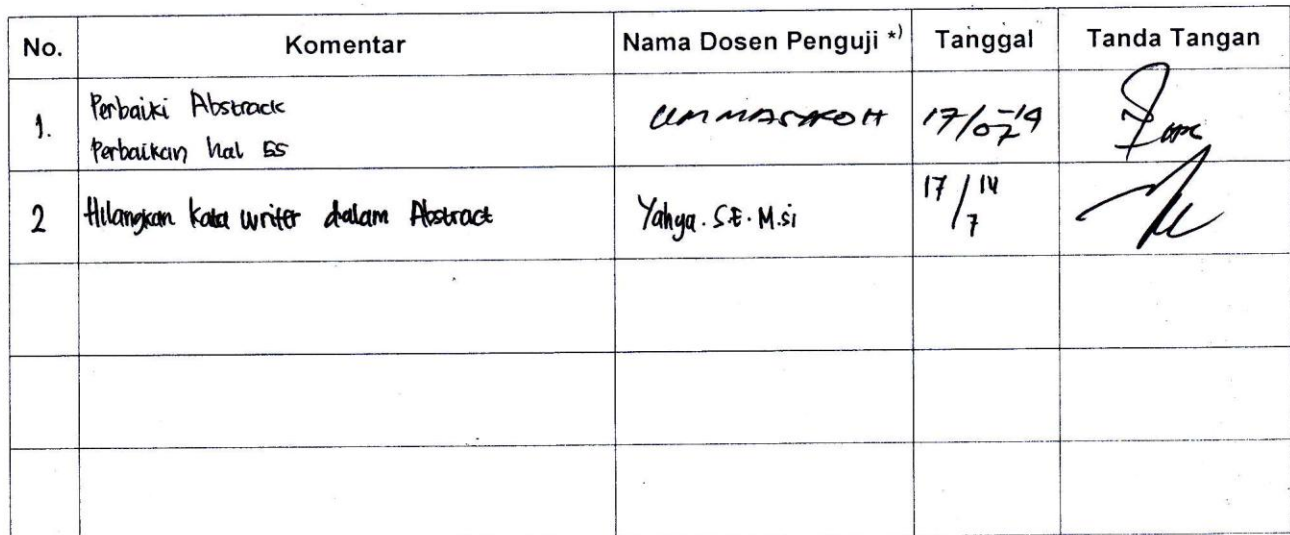 No. Komentar Nama Dosen Penguji *) Tanggal Tanda Tangan
1. Perbaiki Abstrack
Perbaikan hal 55
UMMASYROH 17/07-14
2 Hilangkan kata writer dalam Abstract Yahya. S.E. M.si 17/14
7